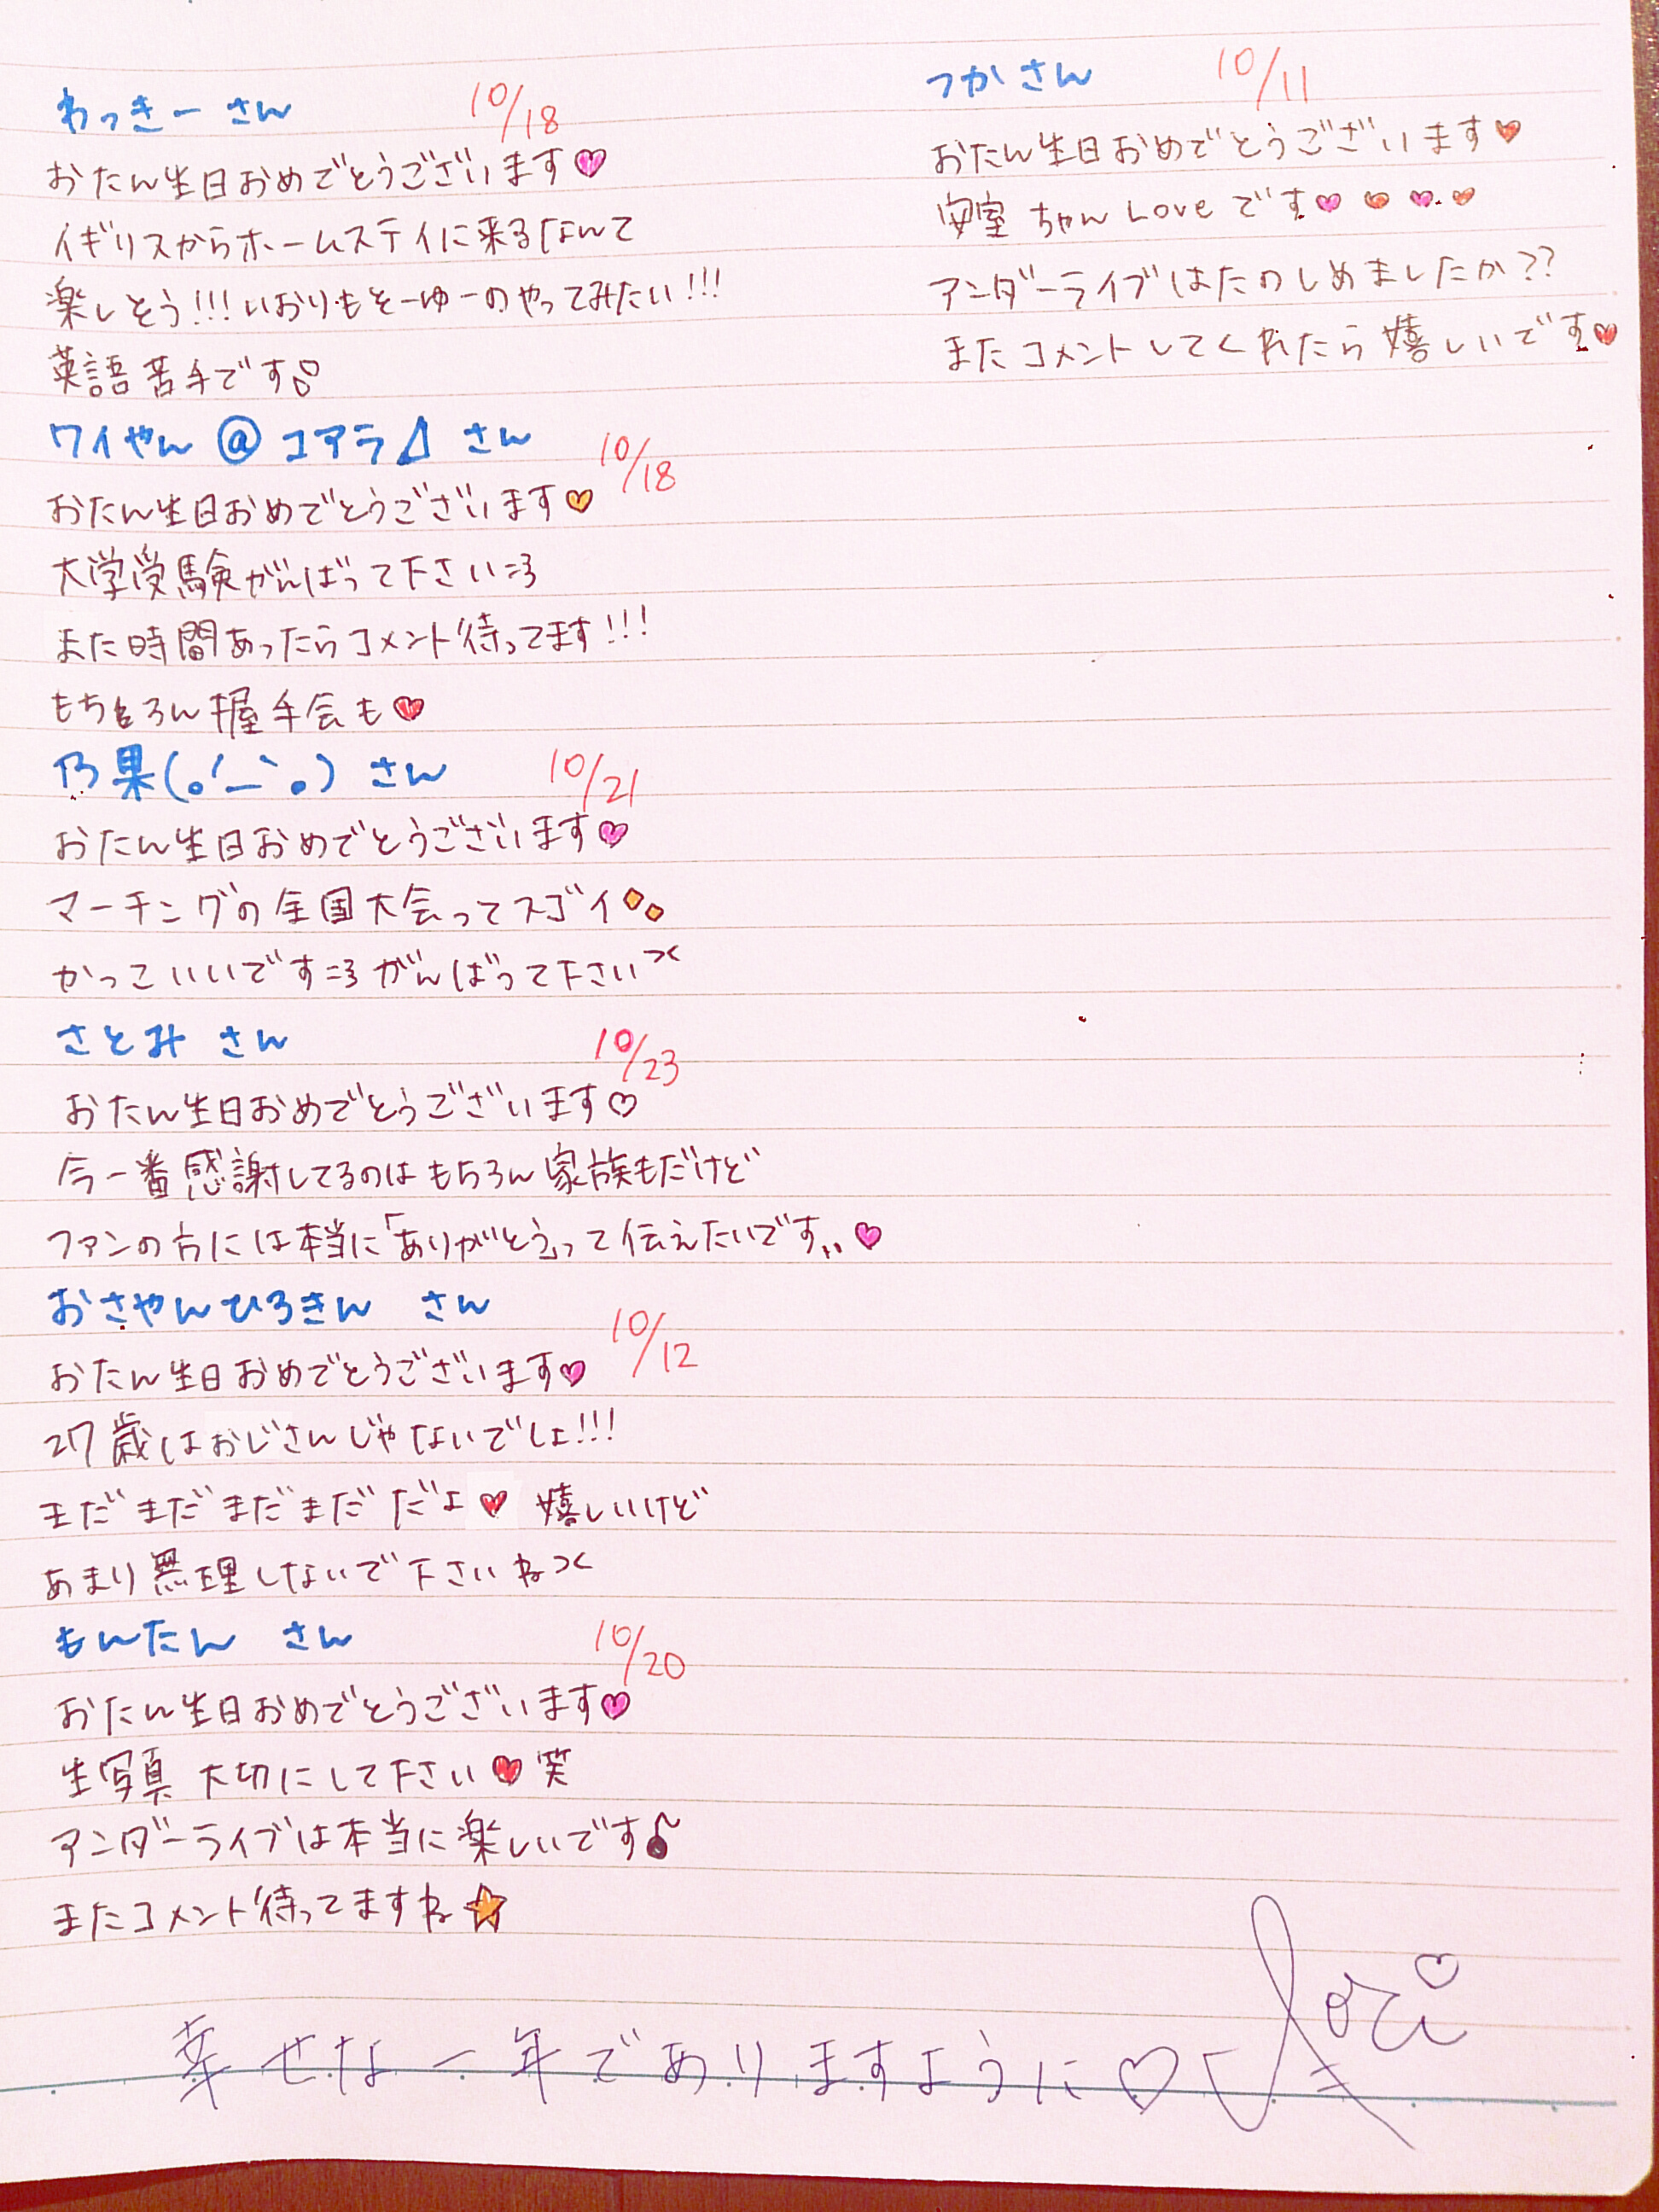 わっきーさん 10/18
おたん生日おめでとうございます♡
イギリスからホームステイに来るなんて
楽しそう!!!いおりもそーゆーのやってみたい!!!
英語苦手です
ワイやん@コアラ⊿ さん 10/18
おたん生日おめでとうございます♡
大学受験がんばって下さい
また時間あったらコメント待ってます!!!
もちろん握手会も♥
乃果(。′_‵。) さん 10/21
おたん生日おめでとうございます♡
マーチングの全国大会ってスゴイ
かっこいいです がんばって下さい
さとみ さん 10/23
おたん生日おめでとうございます♡
今一番感謝してるのはもちろん家族もだけど
ファンの方には本当に「ありがとう」って伝えたいです,,♡
おさやんひろきん さん 10/12
おたん生日おめでとうございます♡
27歳はおじさんじゃないでしょ!!!
まだまだまだまだだよ♥ 嬉しいけど
あまり無理しないで下さいね
もんたん さん 10/20
おたん生日おめでとうございます♡
生写真 大切にして下さい♥笑
アンダーライブは本当に楽しいです♪
またコメント待ってますね☆
つかさん 10/11
おたん生日おめでとうございます♥
安室ちゃんLoveです♥♥♥♥
アンダーライブはたのしめましたか??
またコメントしてくれたら嬉しいです♥
幸せな一年でありますように♡ Iori♡